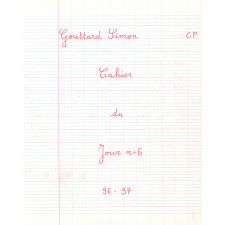 Gouttard Simon CP
Cahier
du
Jour n°5
96-97